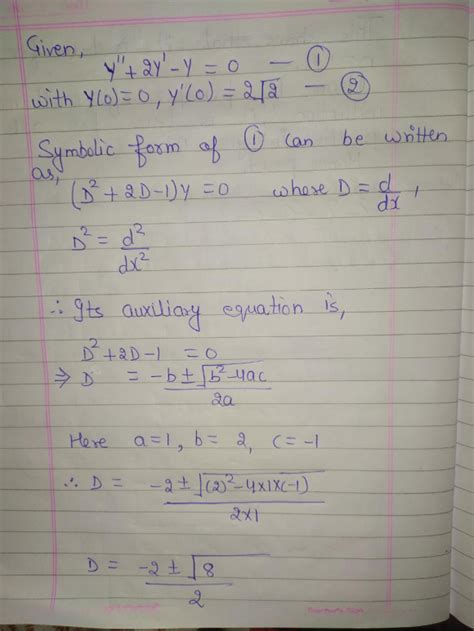 Given,
y'' + 2y' - y = 0 — ①
with y(0) = 0, y'(0) = 2√2 — ②
Symbolic form of ① can be written
as,
(D² + 2D - 1)y = 0 where D = d/dx,
D² = d²/dx²
∴ Its auxiliary equation is,
D² + 2D - 1 = 0
⇒ D = -b ± √(b² - 4ac) / 2a
Here a = 1, b = 2, c = -1
∴ D = -2 ± √((2)² - 4×1×(-1)) / 2×1
D = -2 ± √8 / 2